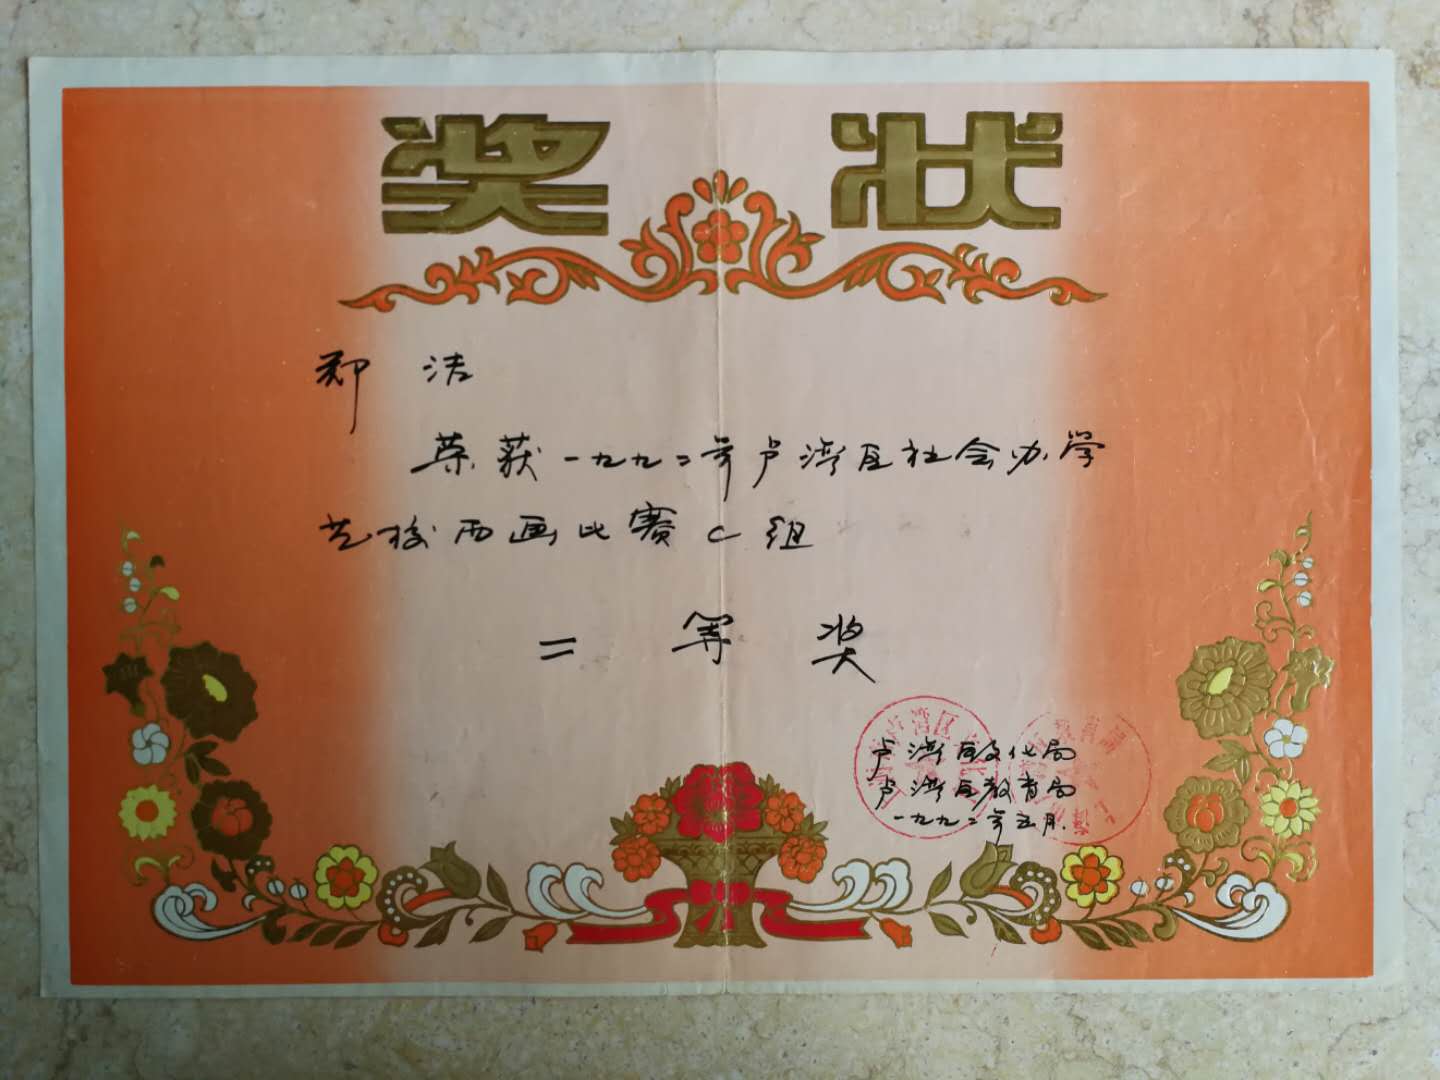 奖状
郑洁
荣获一九九二年卢湾区社会办学
艺校西画比赛C组
二等奖
卢湾区文化局
卢湾区教育局
一九九二年五月.